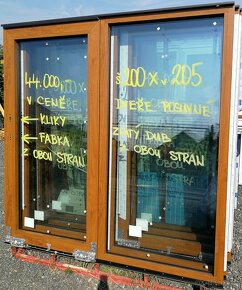 44.000,-
V CENĚ
← KLIKY
← FABKA
Z OBOU STRAN
Š200 X V 205
DVEŘE POSUVNÉ
ZLATÝ DUB
Z OBOU STRAN